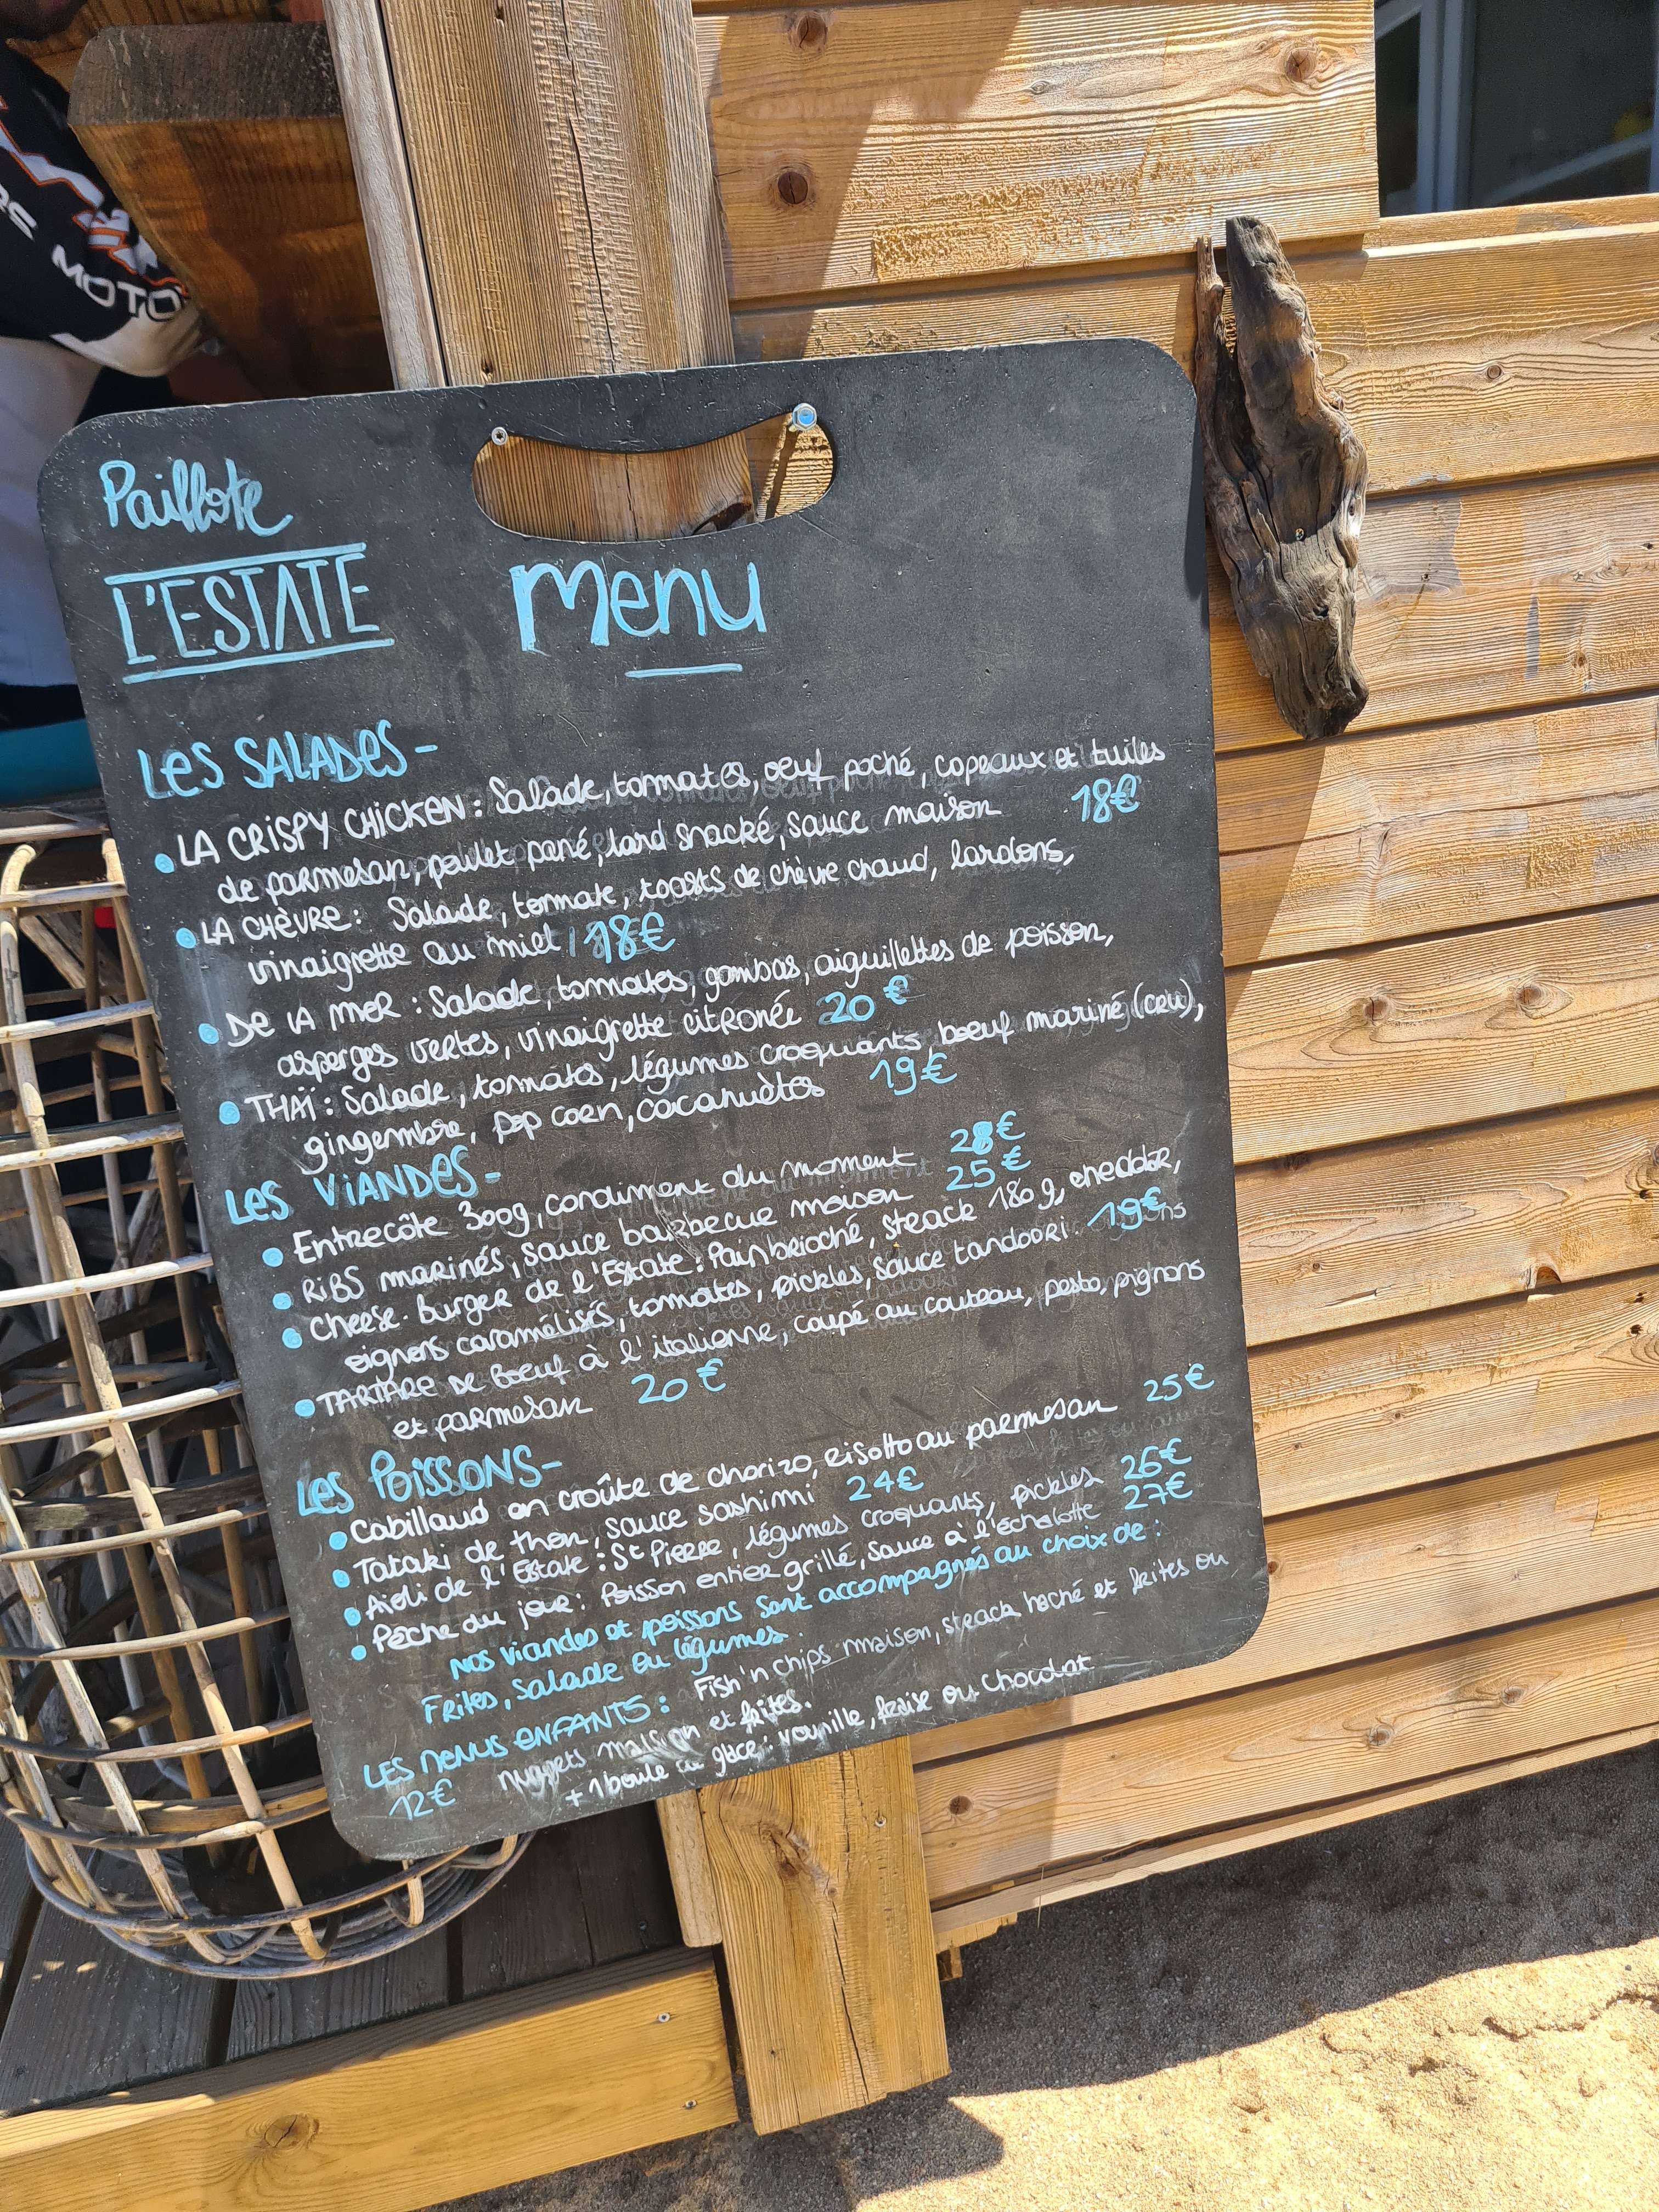 RS MOTO
Paillote
L'ESTATE
Menu
LES SALADES -
• LA CRISPY CHICKEN : Salade, tomates, oeuf poché, copeaux et tuiles
de parmesan, poulet pané, lard snacké, sauce maison 18€
• LA CHÈVRE : Salade, tomate, toasts de chèvre chaud, lardons,
vinaigrette au miel 18€
• DE LA MER : Salade, tomates, gambas, aiguillettes de poisson,
asperges vertes, vinaigrette citronée 20€
• THAÏ : Salade, tomates, légumes croquants, boeuf mariné (cru),
gingembre, pop corn, cacahuètes 19€
LES VIANDES -
• Entrecôte 300g, condiment du moment 28€
• RIBS marinés, sauce barbecue maison 25€
• Cheese-burger de l'Estate : Pain brioché, steack 180g, cheddar,
oignons caramélisés, tomates, pickles, sauce tandoori. 19€
• TARTARE DE Boeuf à l'italienne, coupé au couteau, pesto, pignons
et parmesan 20€
Les POISSONS -
• Cabillaud en croûte de chorizo, risotto au parmesan 25€
• Tataki de thon, sauce sashimi 24€
• Aïoli de l'Estate : St Pierre, légumes croquants, pickles 26€
• Pêche du jour : Poisson entier grillé, sauce à l'échalotte 27€
Nos viandes et poissons sont accompagnés au choix de :
Frites, salade ou légumes.
LES MENUS ENFANTS : Fish'n chips maison, steack haché et frites ou
12€ nuggets maison et frites.
+ 1 boule de glace : vanille, fraise ou chocolat